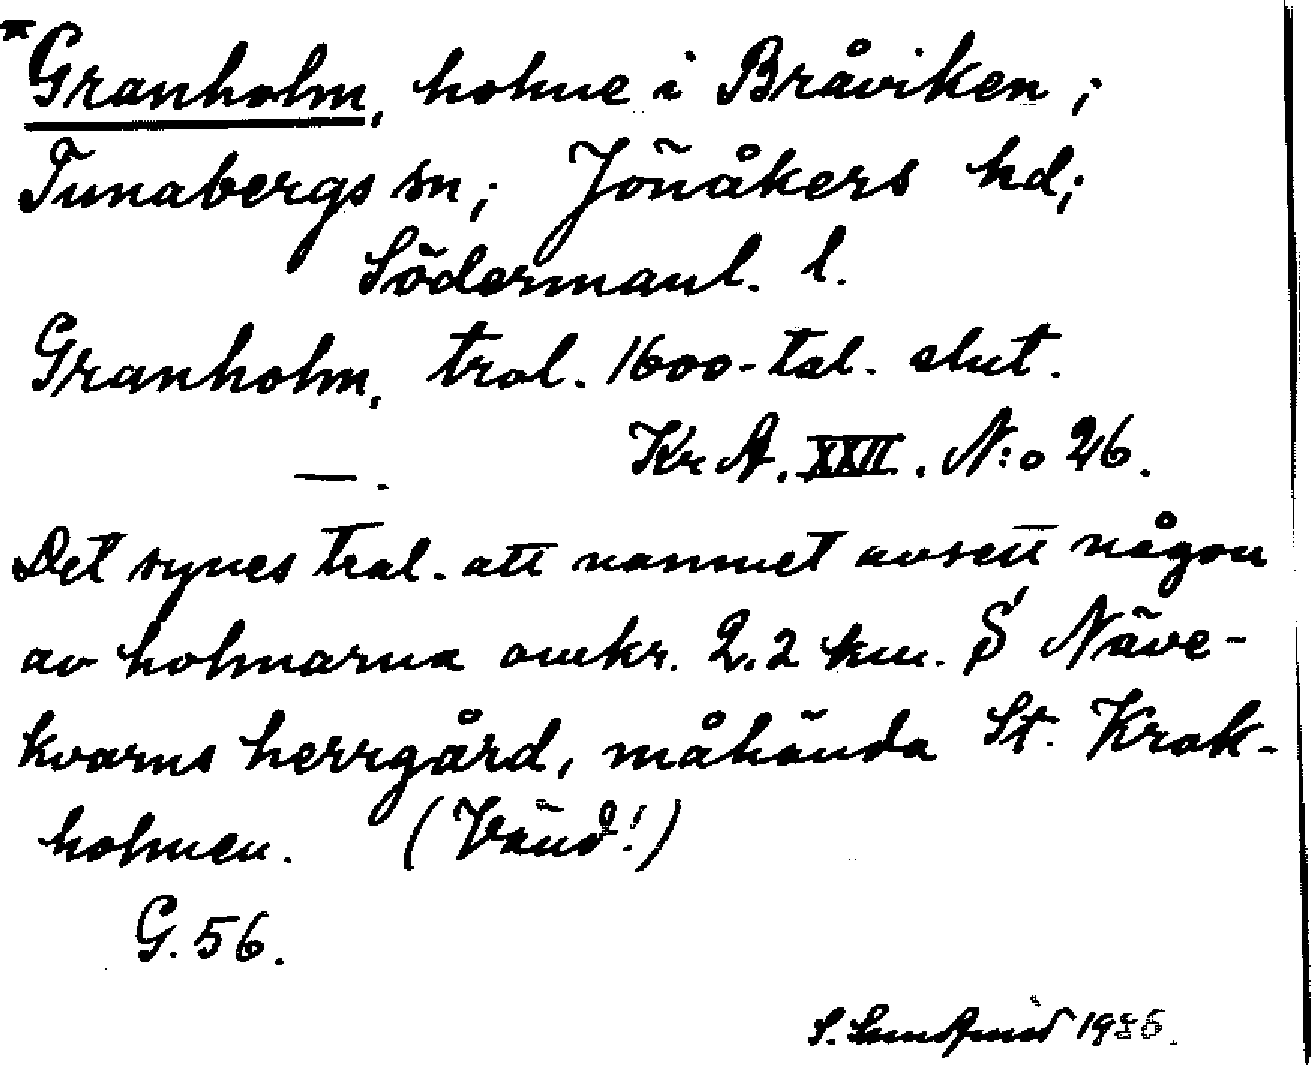 *Granholm, holme i Bråviken;
Tunabergs sn; Jönåkers hd;
Södermanl. l.
Granholm, trol. 1600-tal. slut.
—. Kr A. XXII. N:o 26.
Det synes trol. att namnet avsett någon
av holmarna omkr. 2.2 km. S Näve-
kvarns herrgård, måhända St. Krok-
holmen. (Vänd!)
G. 56.
S. 19